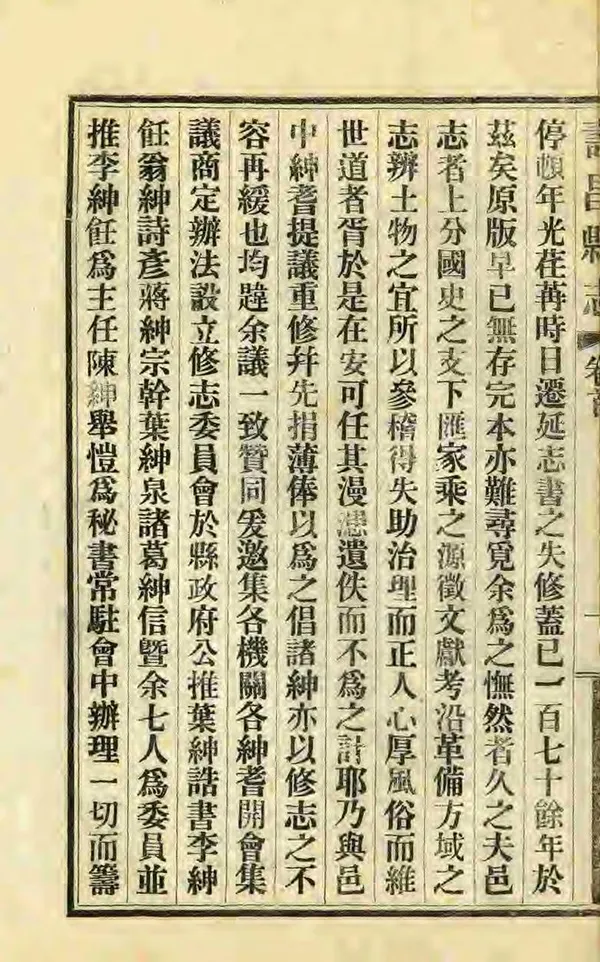 昌縣志 卷首
停頓年光荏苒時日遷延志書之失修蓋已一百七十餘年於
茲矣原版早已無存完本亦難尋覓余爲之憮然者久之夫邑
志者上分國史之支下匯家乘之源徵文獻考沿革備方域之
志辨土物之宜所以參稽得失助治理而正人心厚風俗而維
世道者胥於是在安可任其漫漶遺佚而不爲之計耶乃與邑
中紳耆提議重修幷先捐薄俸以爲之倡諸紳亦以修志之不
容再緩也均韙余議一致贊同爰邀集各機關各紳耆開會集
議商定辦法設立修志委員會於縣政府公推葉紳誥書李紳
飪翁紳詩彥蔣紳宗幹葉紳泉諸葛紳信曁余七人爲委員並
推李紳飪爲主任陳紳舉愷爲秘書常駐會中辦理一切而籌